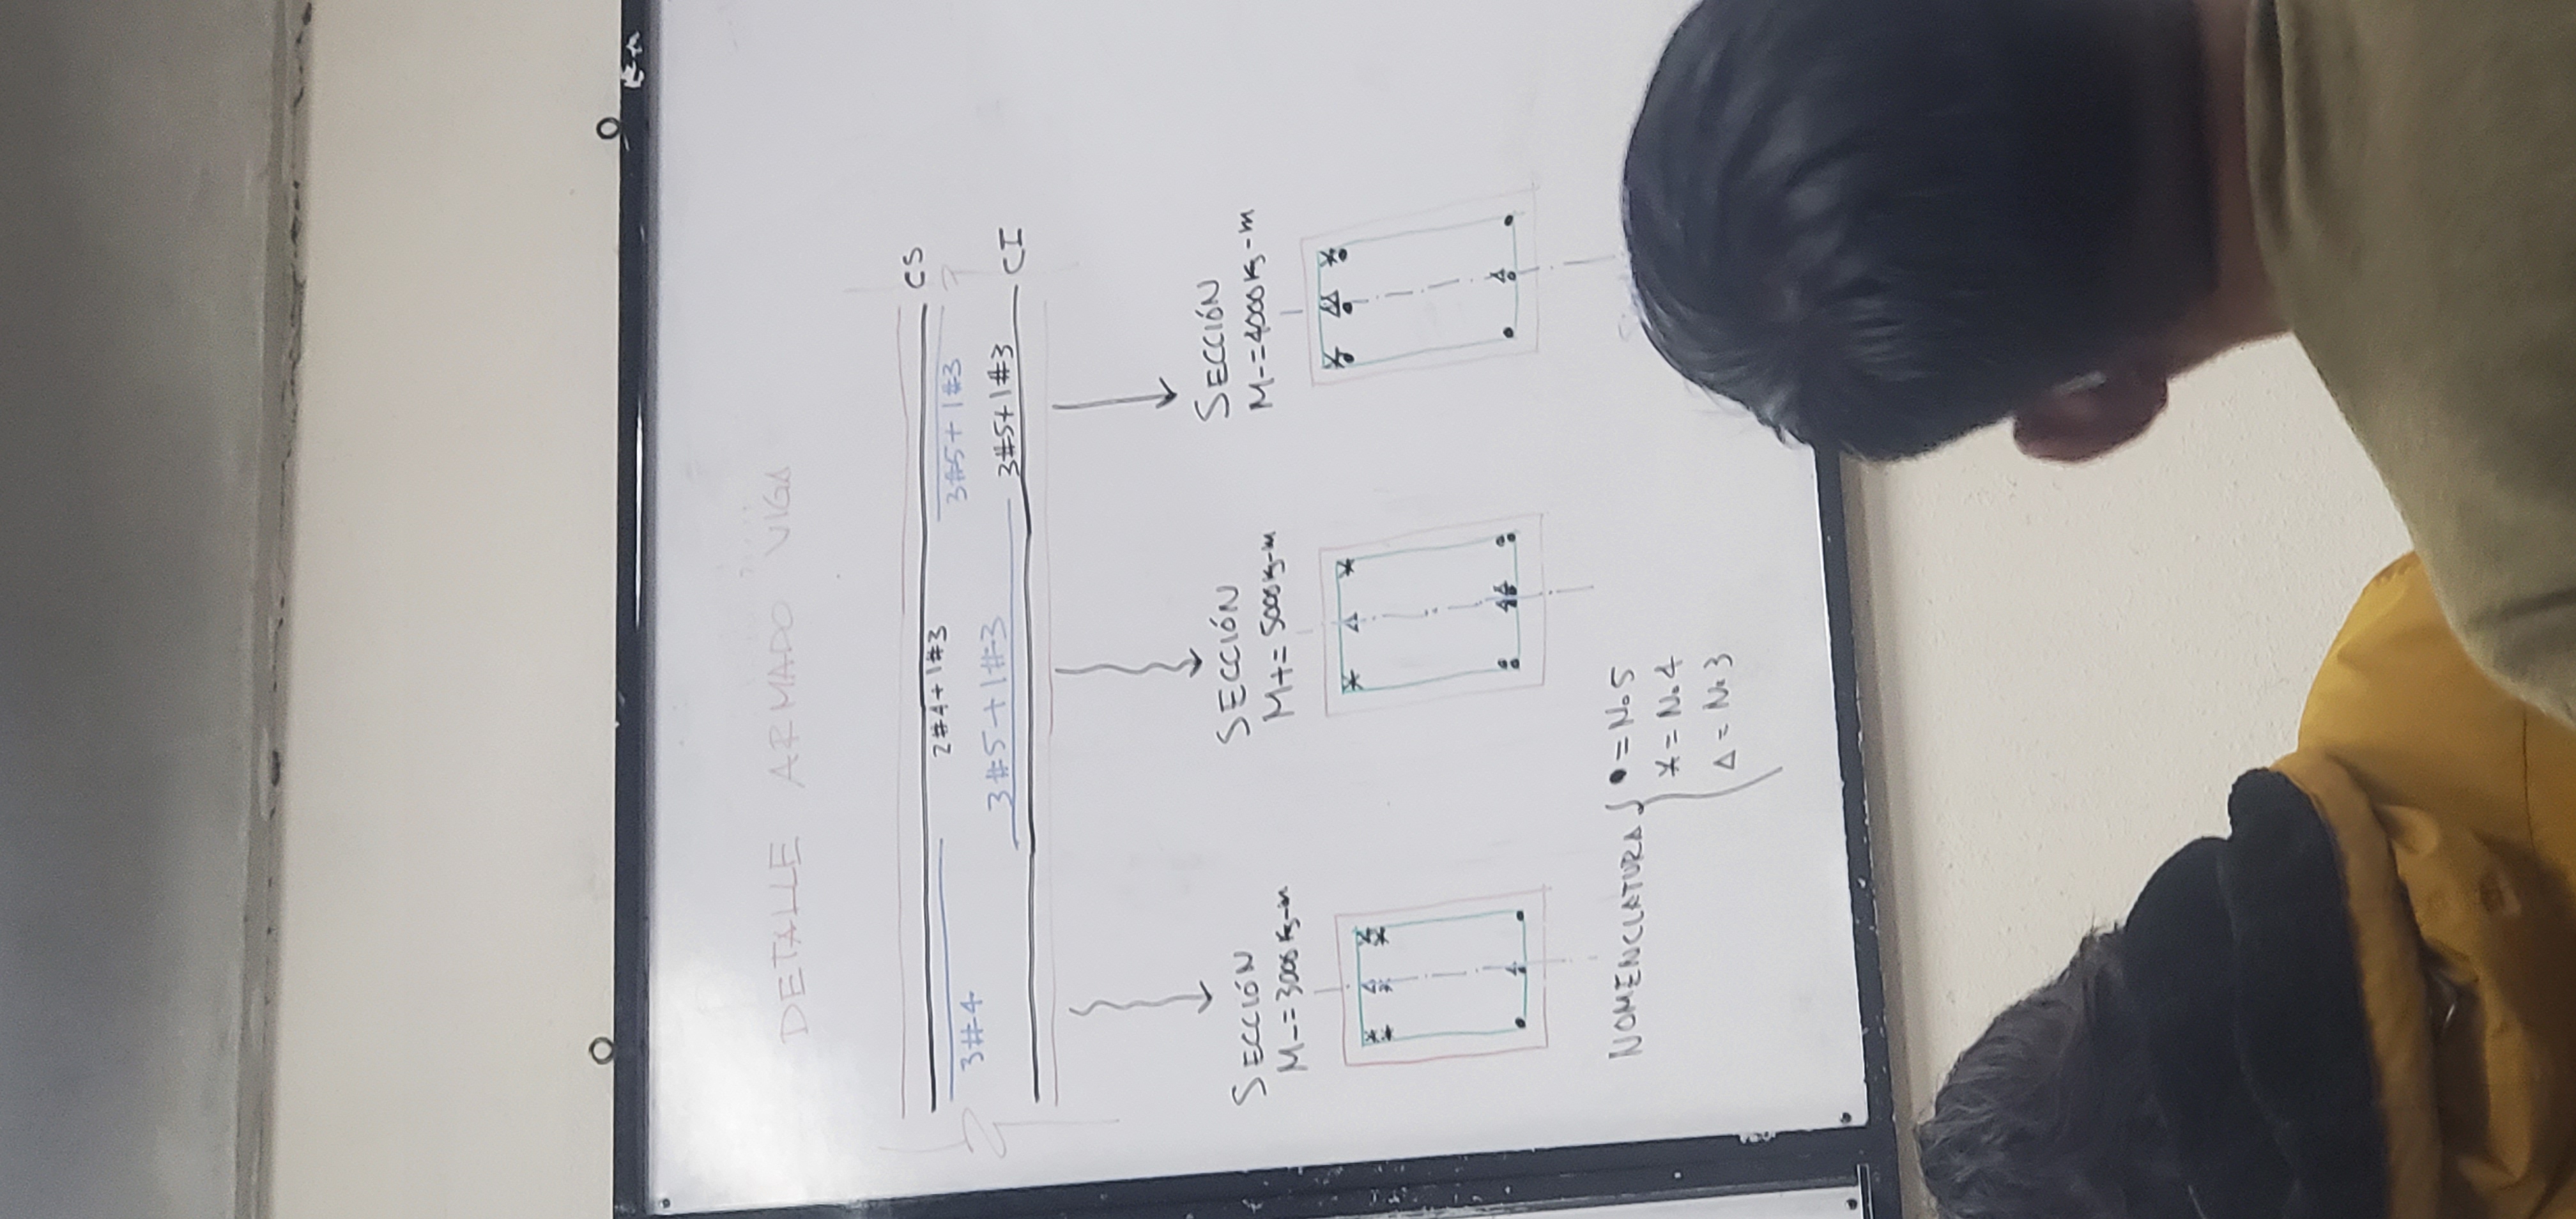 DETALLE ARMADO VIGA
CS
2#4+1#3
3#4
3#5+1#3
3#5+1#3
3#5+1#3
CI
SECCIÓN
M-=3000 Kg-m
SECCIÓN
M+=5000 Kg-m
SECCIÓN
M-=4000 Kg-m
NOMENCLATURA { • = No 5
* = No. 4
Δ = No 3